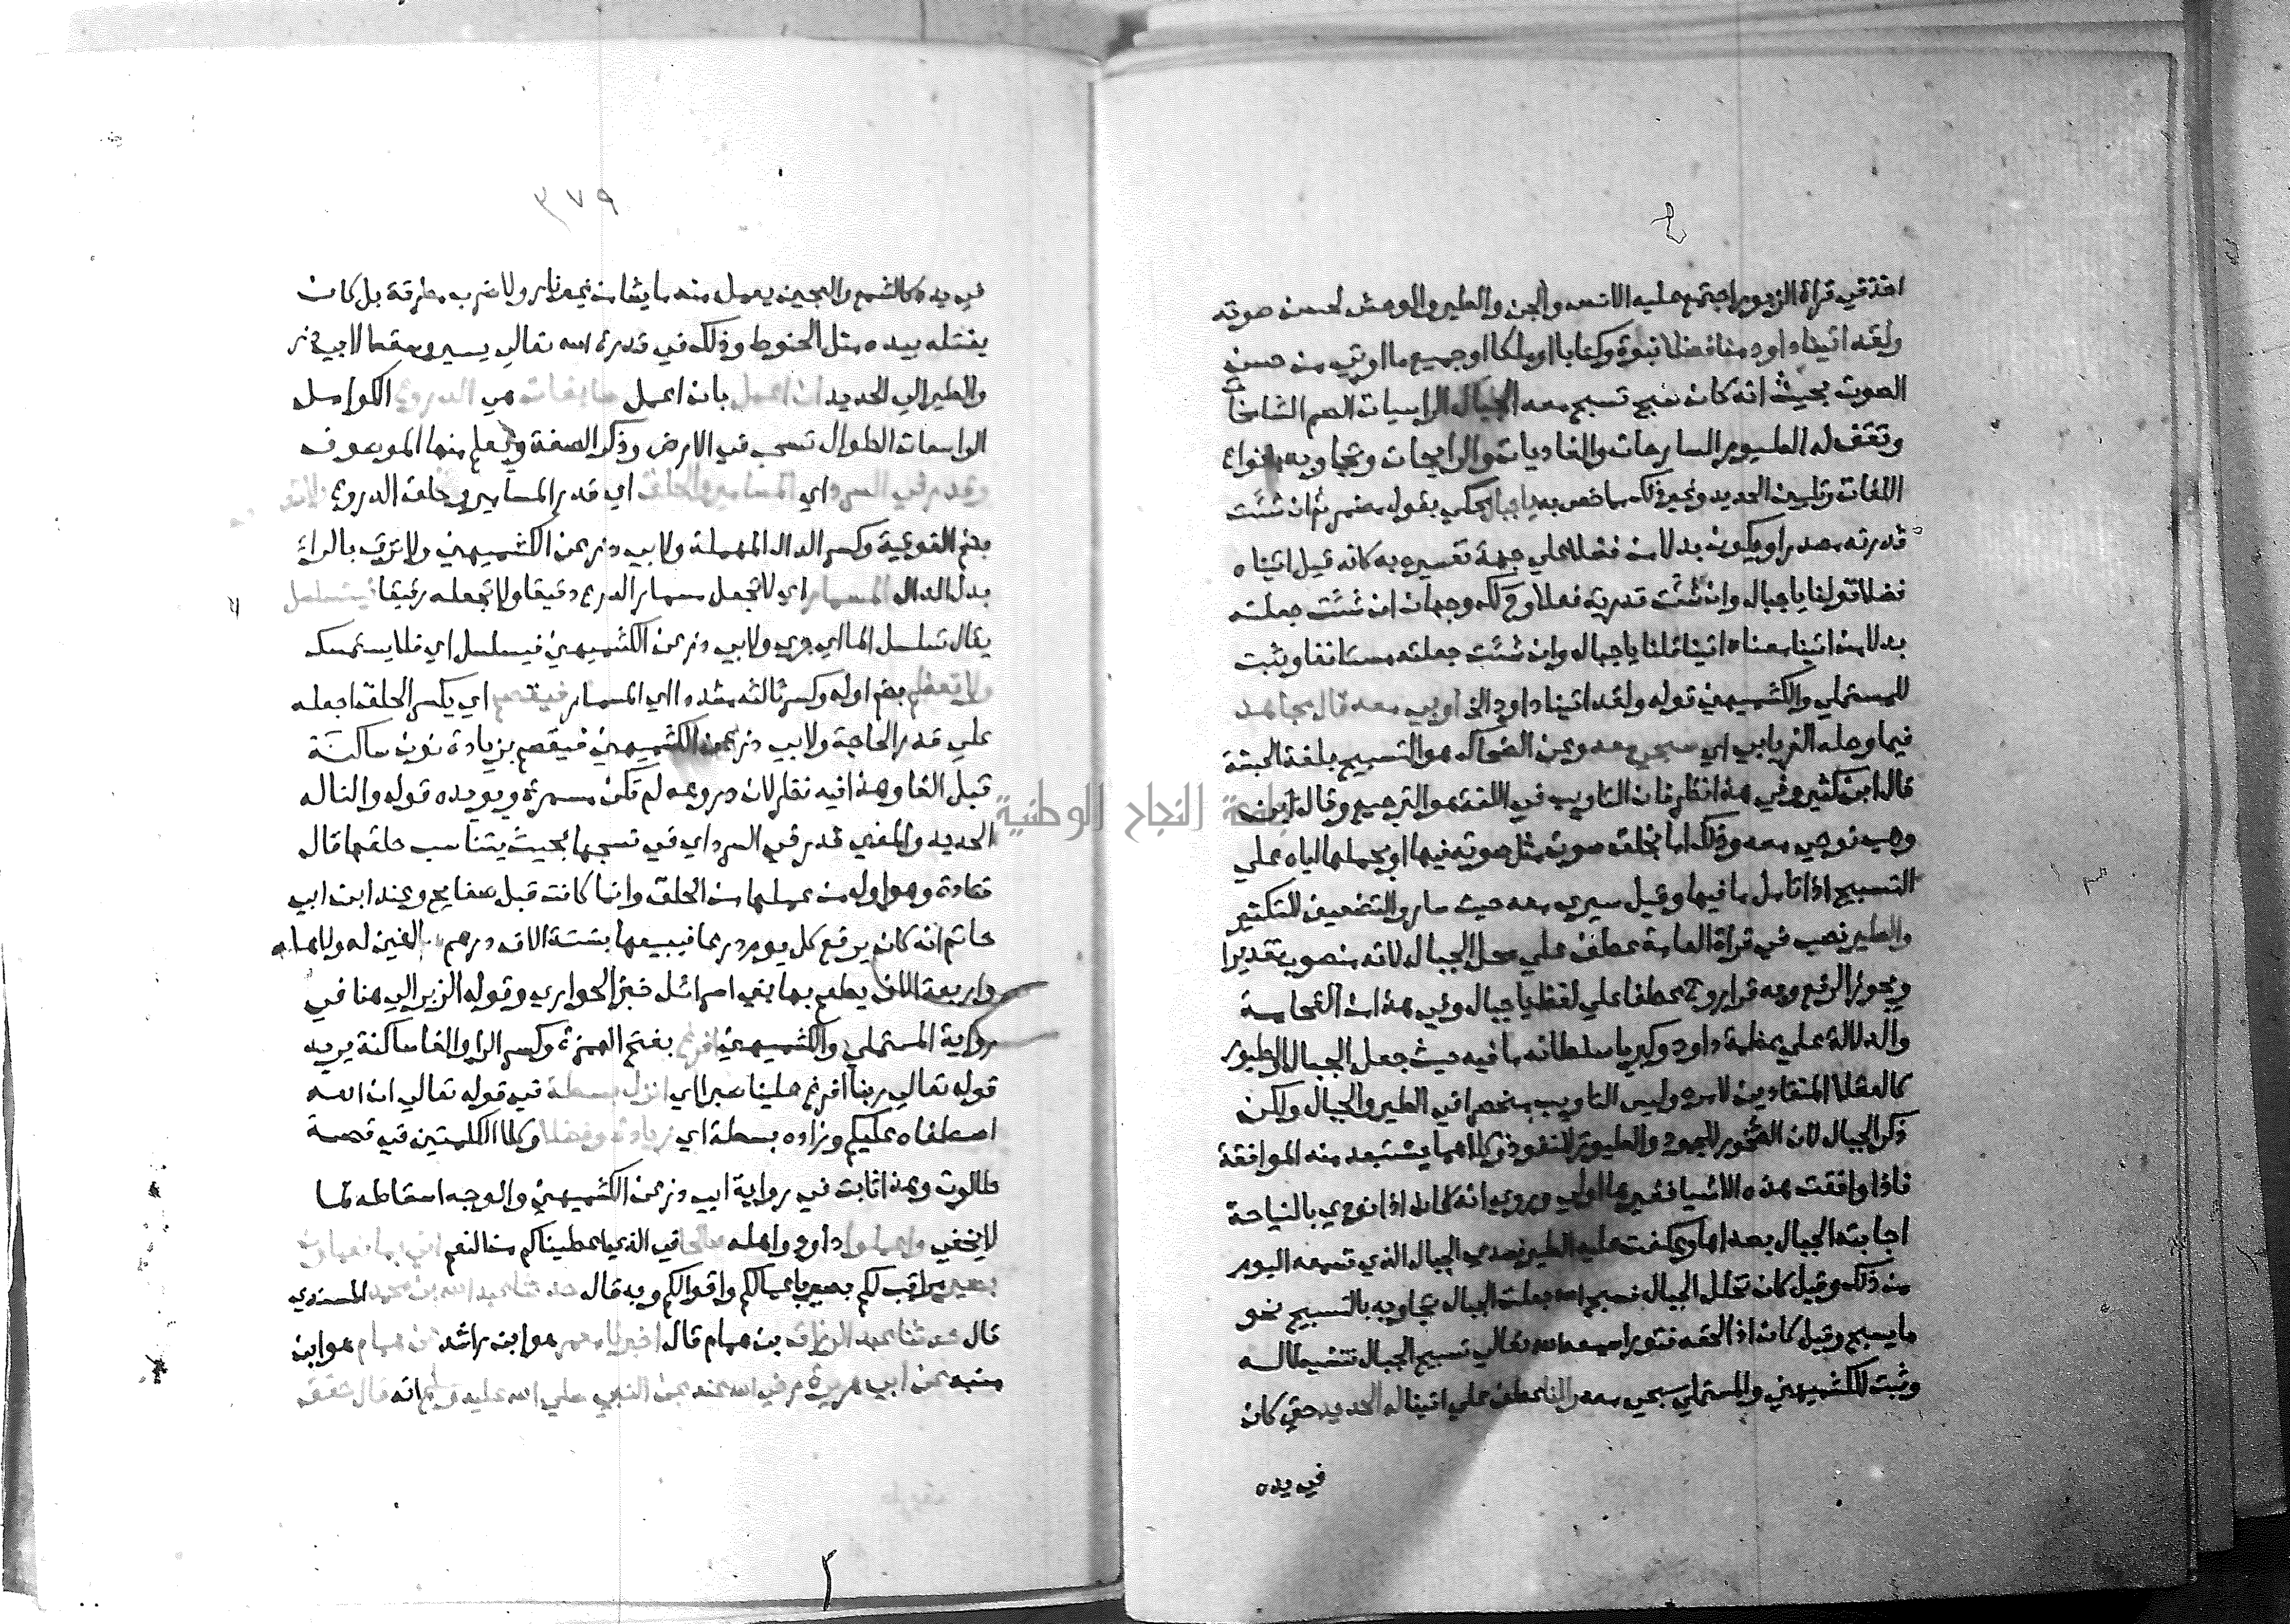 اخذ في قراة الزبور اجتمع عليه الانس والجن والطير والوحش لحسن صوته
ولقد اتينا داود منا فضلا نبوة وكتابا او ملكا او جميع ما اوتي من حسن
الصوت بحيث انه كان سبح تسبح معه الجبال الراسيات الصم الشامخات
وتقف له الطيور السارحات والغاديات والرايحات وتجاوبه بانواع
اللغات وتليين الحديد وغير ذلك مما خص به يا جبال محكي بقول مضمر ثم ان شئت
قدرته مصدرا ويكون بدلا من فضلا على جهة تفسيره به كانه قيل اتيناه
فضلا قولنا يا جبال وان شئت قدرته فعلا وح لك وجهان ان شئت جعلته
بدلا من اتينا معناه اتينا قلنا يا جبال وان شئت جعلته مستانفا وثبت
للمستملي والكشميهني قوله ولقد اتينا داود الخ اوبي معه قال مجاهد
فيما وصله الفريابي اي سبحي معه وعن الضحاك هو التسبيح بلغة الحبشة
قال ابن كثير وفي هذا نظر فان التاويب في اللغة هو الترجيع وقال ابن
وهب نوحي معه وذلك اما بخلق صوت مثل صوته فيها او بحملها اياه على
التسبيح اذا تامل ما فيها وقيل سيري معه حيث سار والتضعيف للتكثير
والطير نصب في قراة العامة عطف على محل الجبال لانه منصوب تقديرا
ويجوز الرفع وبه قرا روح عطفا على لفظ يا جبال وفي هذا من الفخامة
والدلالة على عظمة داود وكبرياء سلطانه ما فيه حيث جعل الجبال والطيور
كالعقلا المنقادين لامره وليس التاويب منحصرا في الطير والجبال ولكن
ذكر الجبال لان الصخور للجمود والطيور للنفور وكلاهما يستبعد منه الموافقة
فاذا وافقت هذه الاشيا فغيرها اولى وروي انه كان اذا نودي بالنياحة
اجابته الجبال بصداها وعكفت عليه الطير فصدى الجبال الذي تسمعه اليوم
من ذلك وقيل كان تخلل الجبال فسبح الله جعلت الجبال تجاوبه بالتسبيح نحو
ما يسبح وقيل كان اذا لحقه فتور اسمعه الله تعالى تسبيح الجبال تنشيطا له
وثبت للكشميهني والمستملي سبحي معه والنا عطف على اتينا له الحديد حتى كان
في يده
٣٧٩
في يده كالشمع والعجين يعمل منه ما يشا من غير نار ولا ضرب مطرقة بل كان
يفتله بيده مثل الخيوط وذلك في قدرة الله تعالى يسير وسقط لابي ذر
والطير الى الحديد ان اعمل بان اعمل سابغات هي الدروع الكوامل
الواسعات الطوال تسحب في الارض وذكر الصفة ويعلم منها الموصوف
وقدر في السرد اي المسامير والحلق اي قدر المسامير وحلق الدروع لا تدق
بضم الفوقية وكسر الدال المهملة ولابي ذر عن الكشميهني ولا ترق بالراء
بدل الدال المسمار اي لا تجعل مسمار الدرع دقيقا ولا تجعله رقيقا فيتسلسل
يقال تسلسل الما اي جري ولابي ذر عن الكشميهني فيسلسل اي فلا يستمسك
ولا تعظم بضم اوله وكسر ثالثه مشددا اي المسمار فيفصم اي يكسر الحلقة اجعله
على قدر الحاجة ولابي ذر عن الكشميهني فينفصم بزيادة نون ساكنة
قبل الفا وهذا فيه نظر لان دروعه لم تكن مسمرة ويويده قوله والنا له
الحديد والمعني قدر في السرد اي في نسجها بحيث يتناسب حلقها قال
قتادة وهو اول من عملها من الحلق وانما كانت قبل صفايح وعند ابن ابي
حاتم انه كان يرفع كل يوم درعا فيبيعها بستة الاف درهم الفين له ولاهله
واربعة الاف يطعم بها بني اسرائل خبز الحواري وقوله الزبر الى هنا في
رواية المستملي والكشميهني افرغ بفتح الهمزة وكسر الرا والغا ساكنة يريد
قوله تعالى ربنا افرغ علينا صبرا اي انزل بسطة في قوله تعالى ان الله
اصطفاه عليكم وزاده بسطة اي زيادة وفضلا وكلا الكلمتين في قصة
طالوت وهذا ثابت في رواية ابي ذر عن الكشميهني والوجه اسقاطه كما
لا يخفي واعملوا داود واهله صالحا في الذي اعطيناكم من النعم اني بما تعملون
بصير مراقب لكم بصير باعمالكم واقوالكم وبه قال حدثنا عبد الله بن محمد المسندي
قال حدثنا عبد الرزاق بن همام قال اخبرنا معمر هو ابن راشد عن همام هو ابن
منبه عن ابي هريرة رضي الله عنه عن النبي صلي الله عليه وسلم انه قال خفف
جامعة النجاح الوطنية